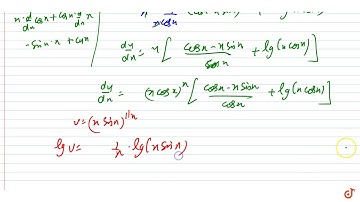 x·d/dx cosx + cosx·d/dx x
-sinx·x + cosx
xcosx
du/dx = u [ (cosx - x sinx)/cosx + lg(x cosx) ]
du/dx = (x cosx)^x [ (cosx - x sinx)/cosx + lg(x cosx) ]
v = (x sinx)^1/x
lg v = 1/x · lg(x sinx)